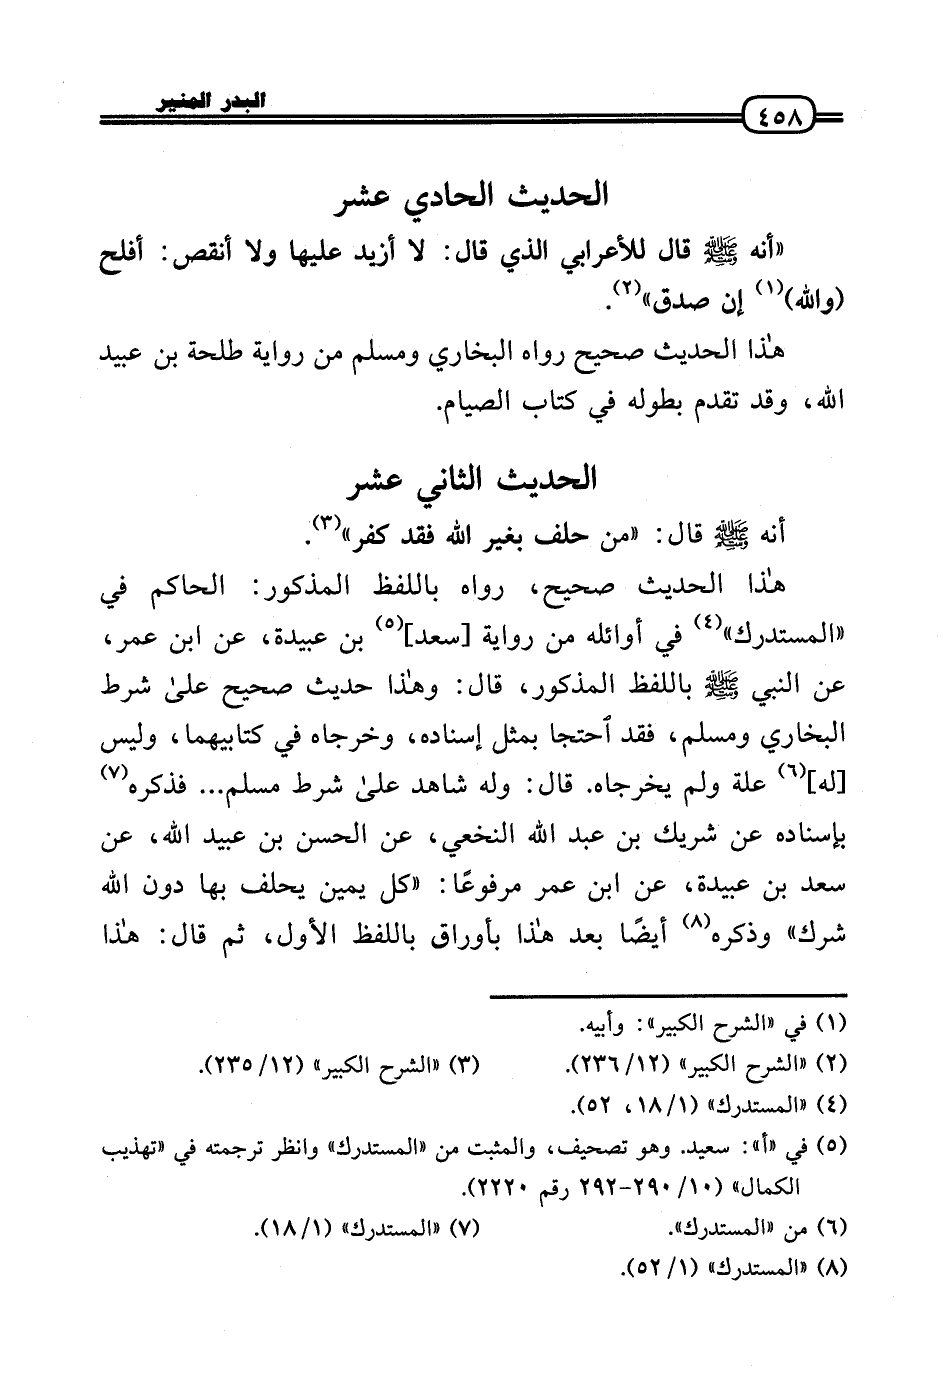 البدر المنير
٤٥٨
الحديث الحادي عشر
«أنه ﷺ قال للأعرابي الذي قال: لا أزيد عليها ولا أنقص: أفلح
(والله)(١) إن صدق»(٢).
هذا الحديث صحيح رواه البخاري ومسلم من رواية طلحة بن عبيد
الله، وقد تقدم بطوله في كتاب الصيام.
الحديث الثاني عشر
أنه ﷺ قال: «من حلف بغير الله فقد كفر»(٣).
هذا الحديث صحيح، رواه باللفظ المذكور: الحاكم في
«المستدرك»(٤) في أوائله من رواية [سعد](٥) بن عبيدة، عن ابن عمر،
عن النبي ﷺ باللفظ المذكور، قال: وهذا حديث صحيح على شرط
البخاري ومسلم، فقد ٱحتجا بمثل إسناده، وخرجاه في كتابيهما، وليس
[له](٦) علة ولم يخرجاه. قال: وله شاهد على شرط مسلم... فذكره(٧)
بإسناده عن شريك بن عبد الله النخعي، عن الحسن بن عبيد الله، عن
سعد بن عبيدة، عن ابن عمر مرفوعًا: «كل يمين يحلف بها دون الله
شرك» وذكره(٨) أيضًا بعد هذا بأوراق باللفظ الأول، ثم قال: هذا
(١) في «الشرح الكبير»: وأبيه.
(٢) «الشرح الكبير» (١٢/ ٢٣٦). (٣) «الشرح الكبير» (١٢/ ٢٣٥).
(٤) «المستدرك» (١/ ١٨، ٥٢).
(٥) في «أ»: سعيد. وهو تصحيف، والمثبت من «المستدرك» وانظر ترجمته في «تهذيب
الكمال» (١٠/ ٢٩٠-٢٩٢ رقم ٢٢٢٠).
(٦) من «المستدرك». (٧) «المستدرك» (١/ ١٨).
(٨) «المستدرك» (١/ ٥٢).